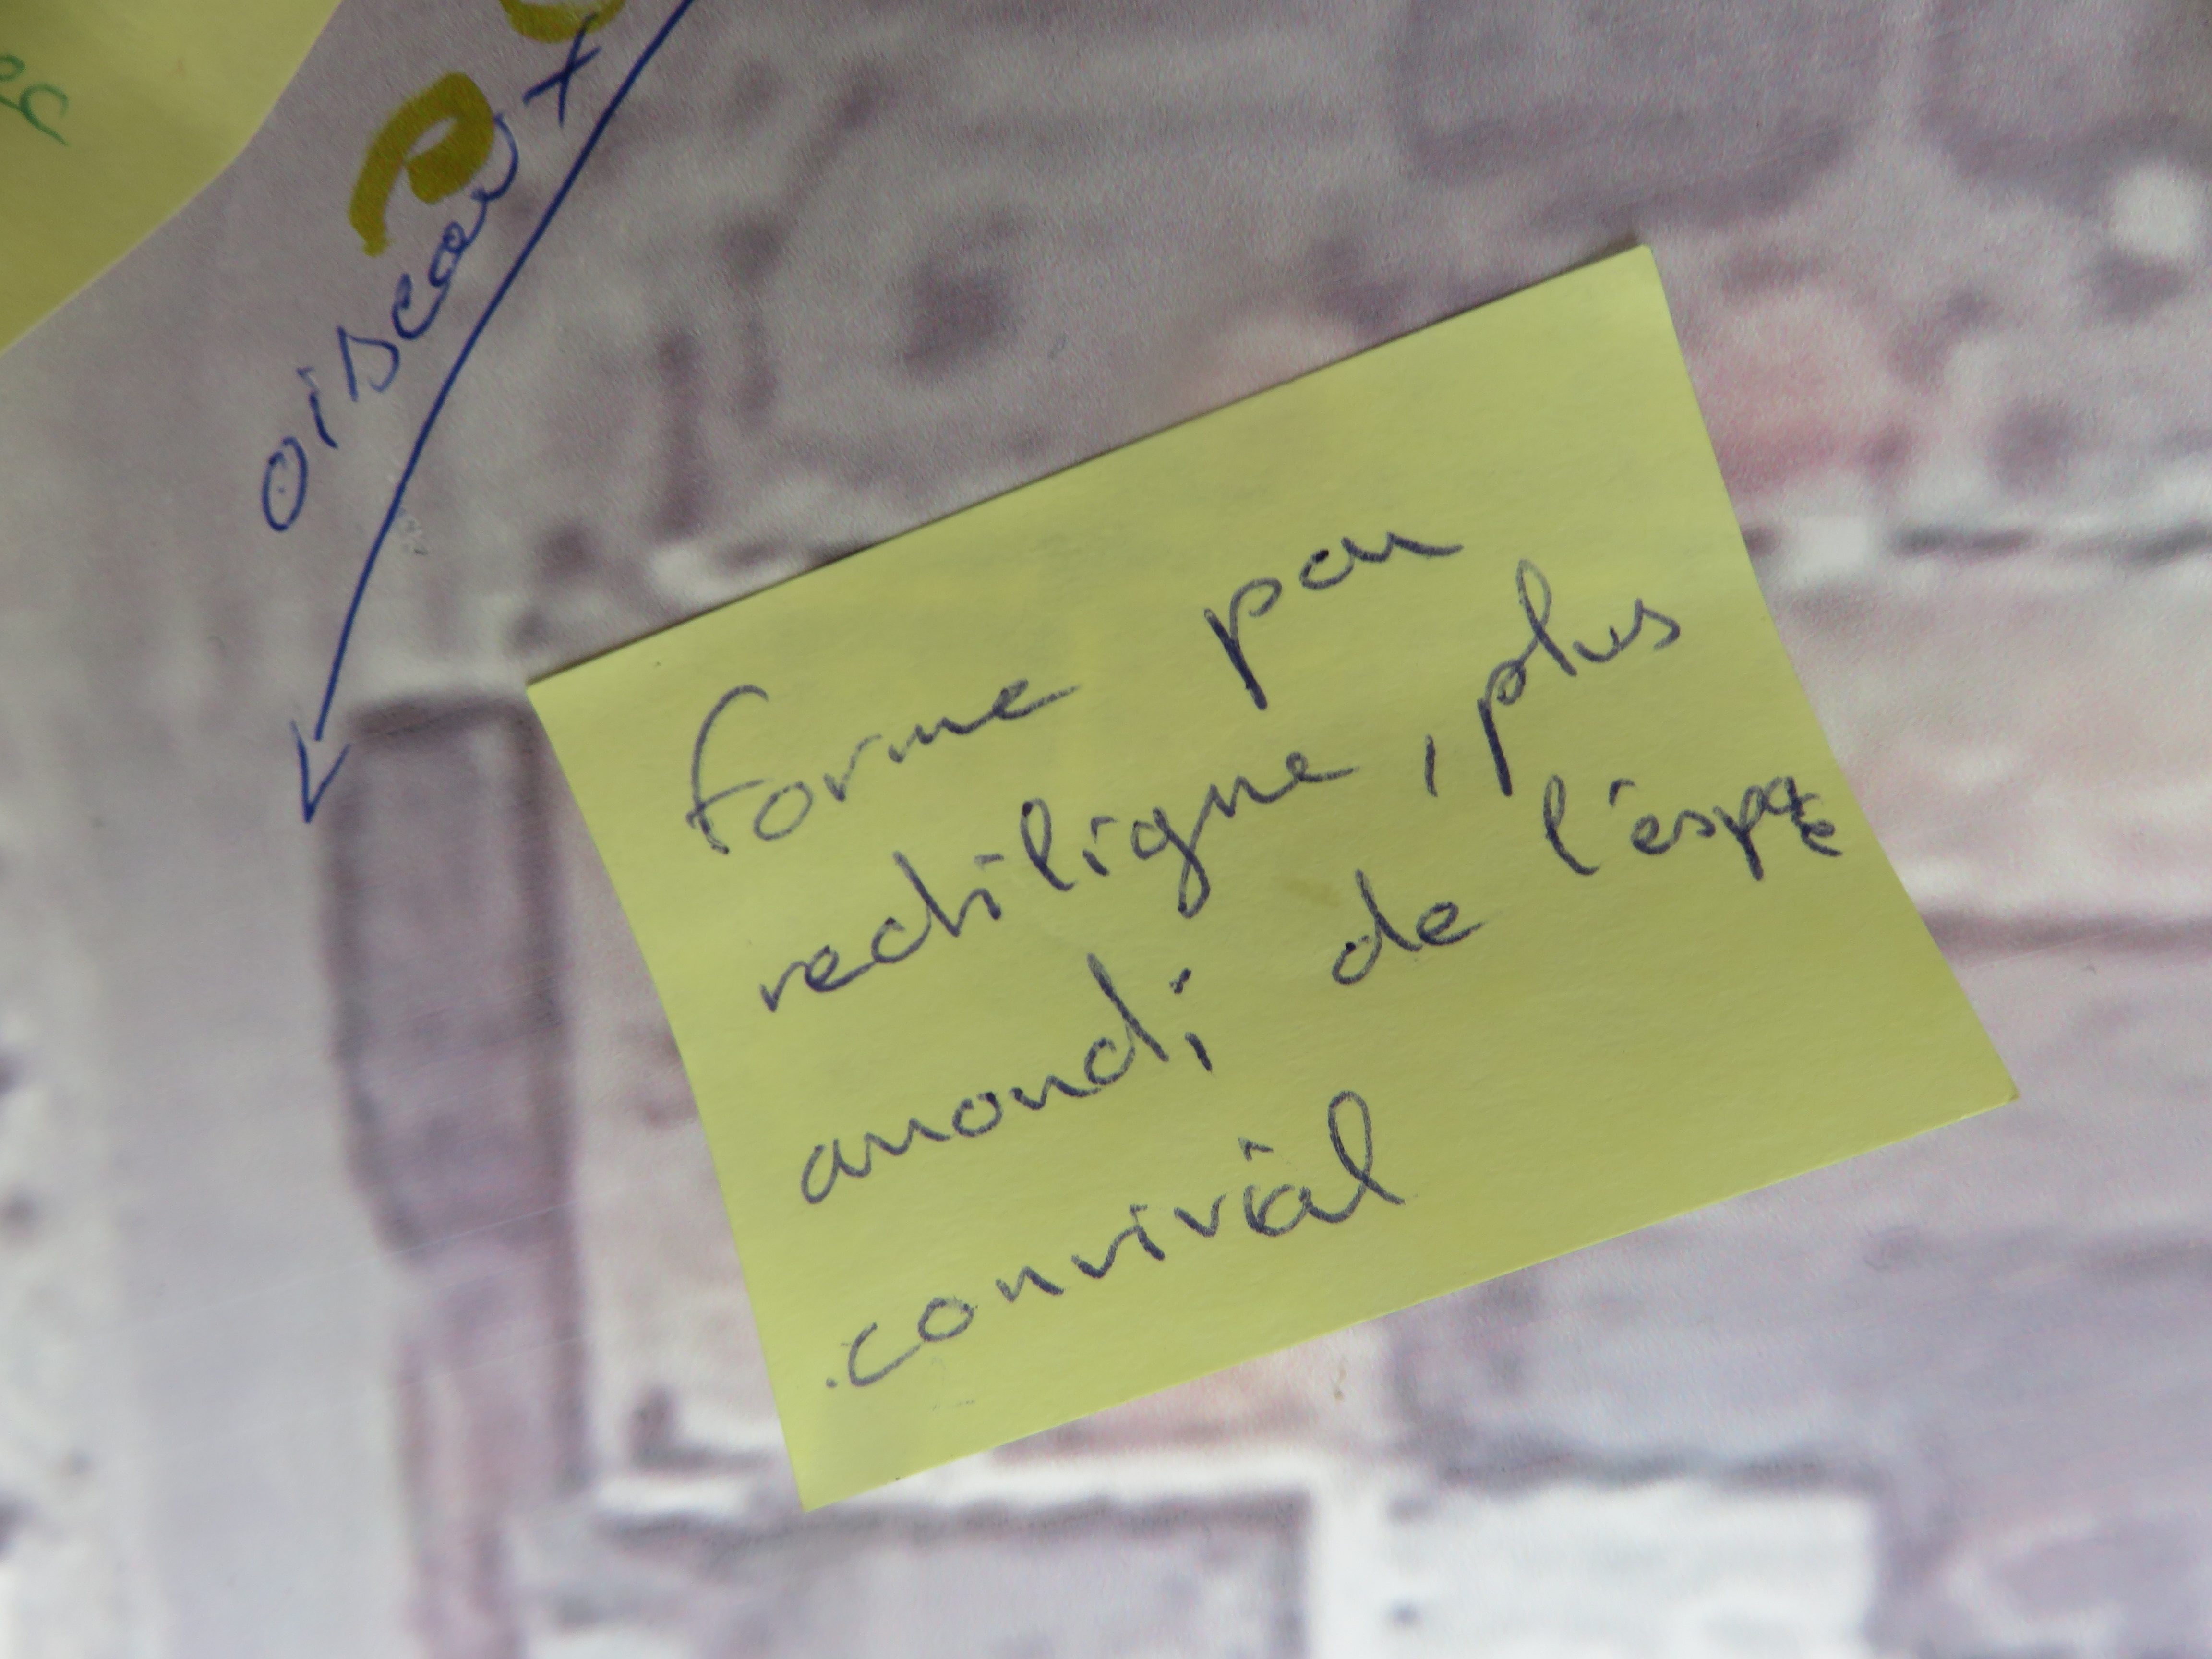 oiseaux
forme pas
rectiligne, plus
arrondi de l'éspace
convivial